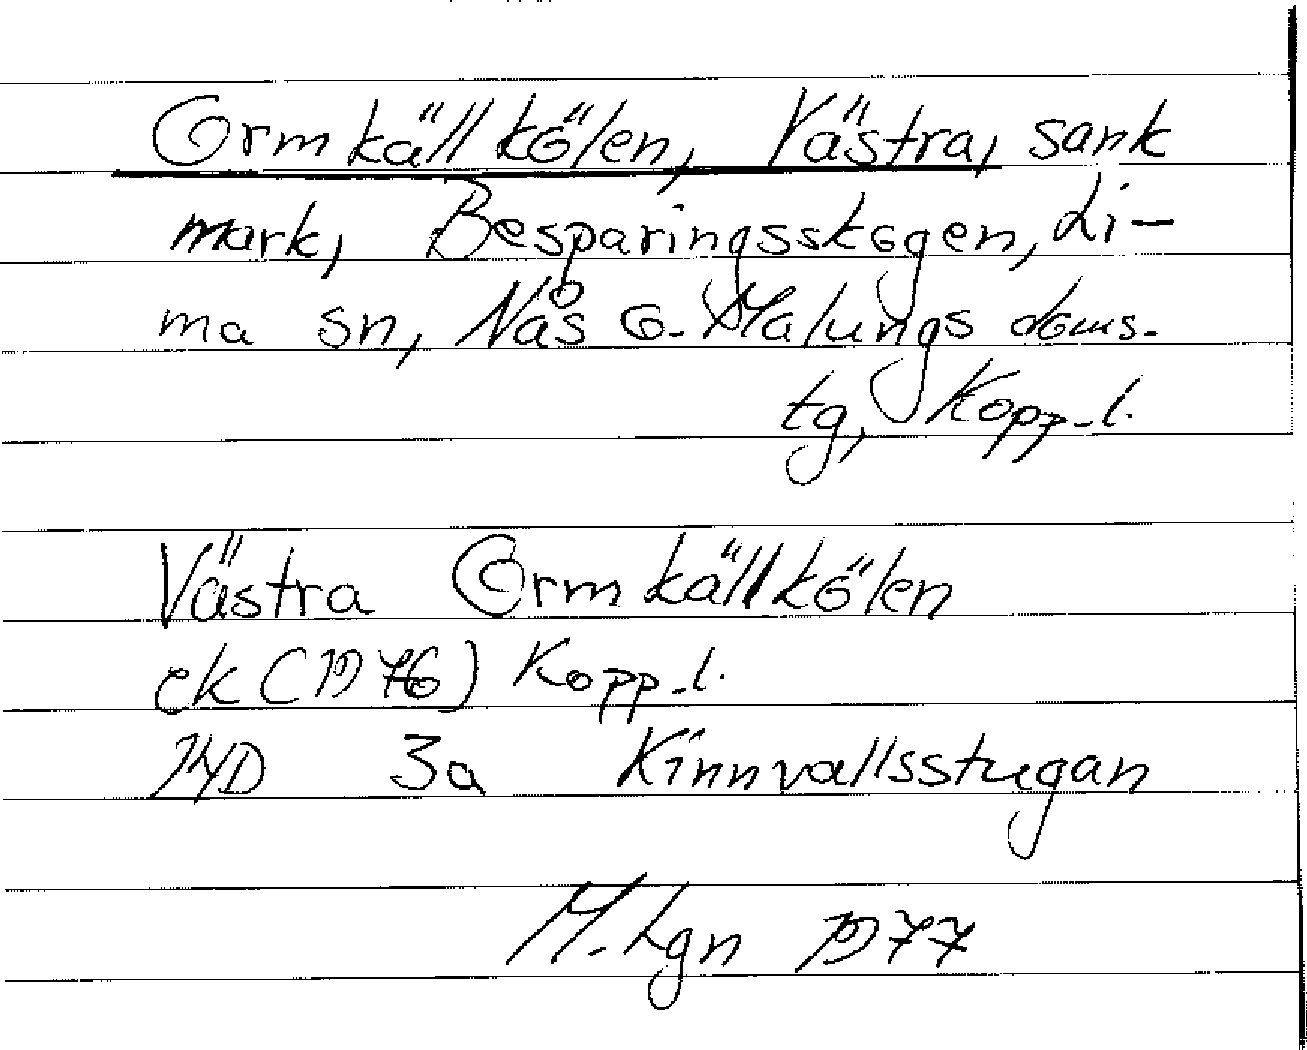 Ormkällkölen, Västra, sank
mark, Besparingsskogen, Li-
ma sn, Nås o. Malungs doms.
tg, Kopp. l.
Västra Ormkällkölen
ek (1976) Kopp. l.
14D 3a Kinnvallsstugan
M. Lgn 1977